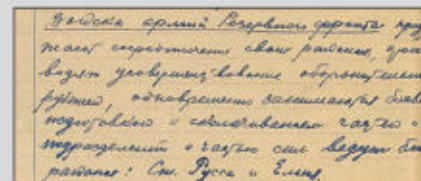 Войска армий Резервного фронта прод
жают укреплять свои районы, произ
водят усовершенствование оборонительных
рубежей, одновременно занимаются боевой
подготовкой и сколачиванием частей и
подразделений и частью сил ведут бои
районе: Ст. Русса и Ельня.